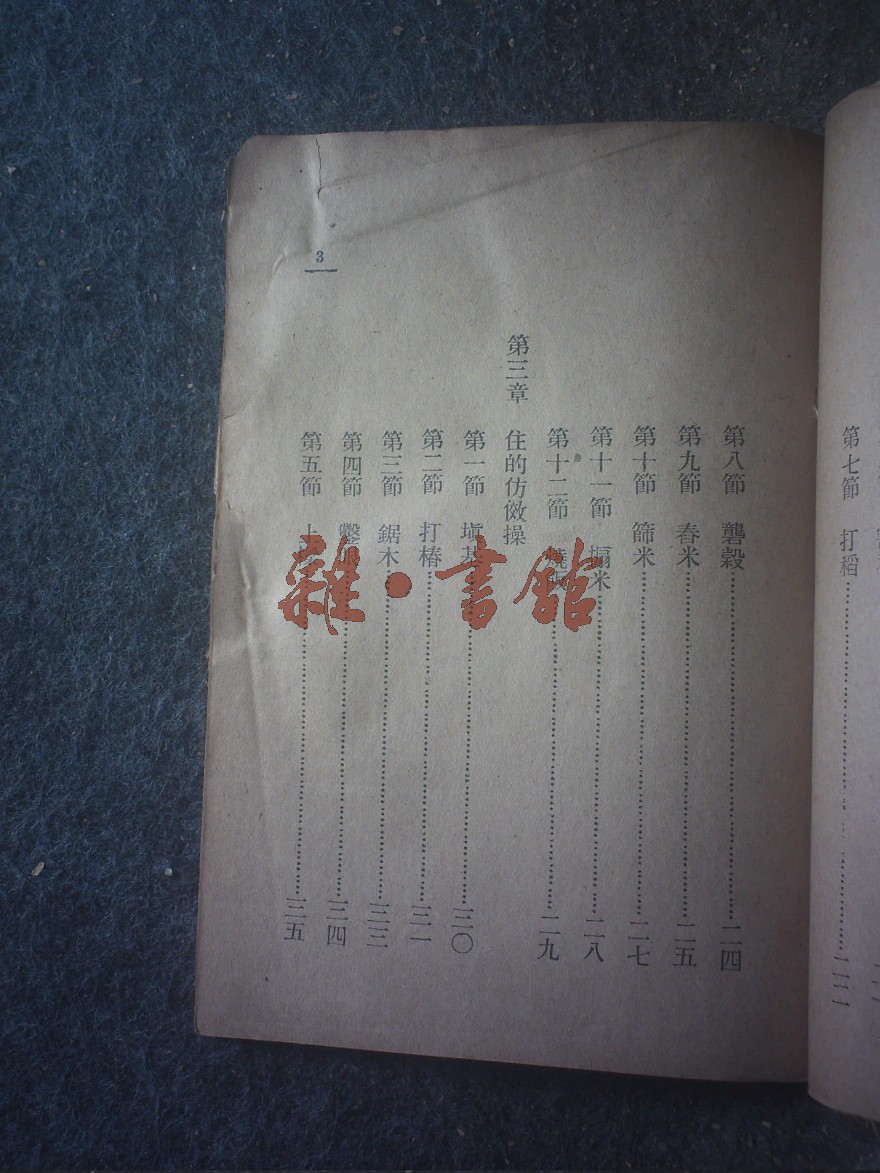 第七節 打稻……二二
第八節 礱穀……二四
第九節 舂米……二五
第十節 篩米……二七
第十一節 搧米……二八
第十二節 燒……二九
第三章 住的仿傚操
第一節 塡基……三〇
第二節 打樁……三一
第三節 鋸木……三三
第四節 鑿眼……三四
第五節 上……三五
3
雜·書館